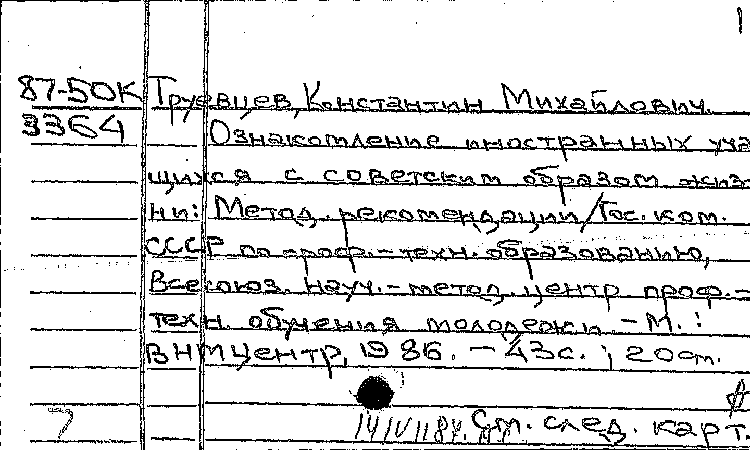 1
87-50К Труевцев, Константин Михайлович.
3364 Ознакомление иностранных уча-
щихся с советским образом жиз-
ни: Метод. рекомендации/Гос. ком.
СССР по проф.-техн. образованию,
Всесоюз. науч.-метод. центр проф.-
техн. обучения молодежи. - М.:
ВНМЦентр, 1986. - 43с. ; 20см.
См. след. карт.